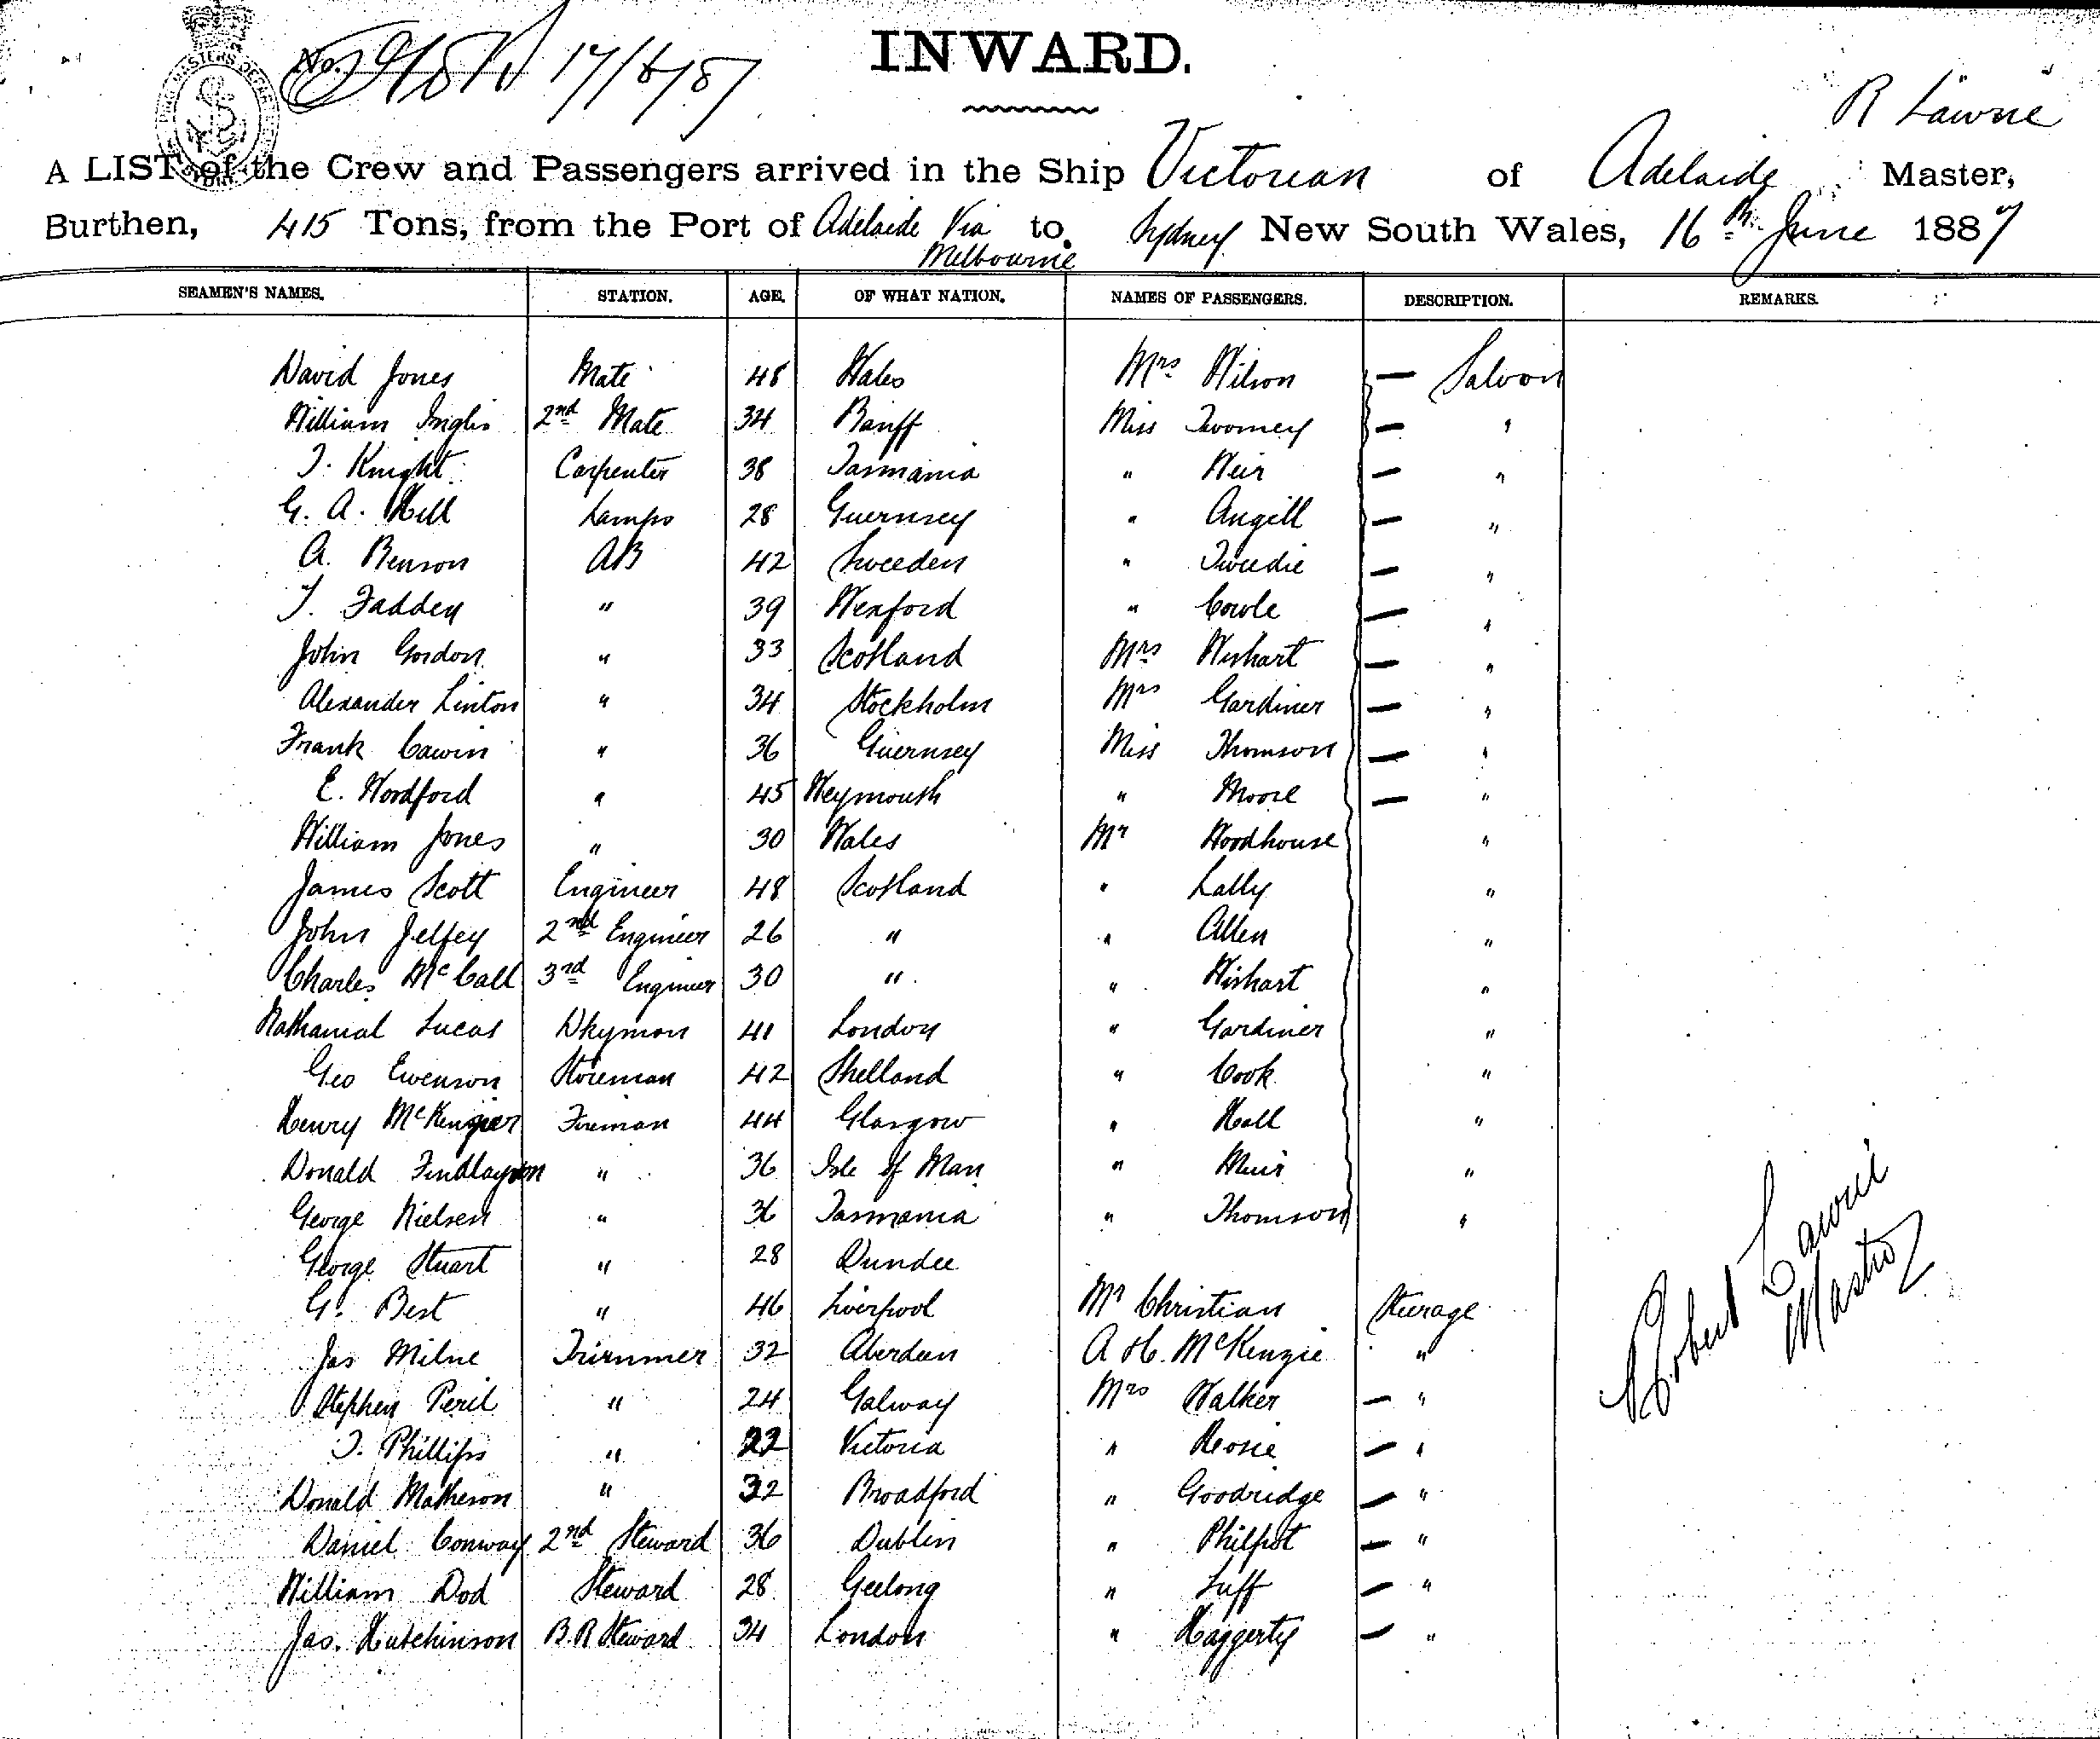 INWARD.
No. 17/6/87
R Lawrie
A LIST of the Crew and Passengers arrived in the Ship Victorian of Adelaide Master,
Burthen, 415 Tons, from the Port of Adelaide Via Melbourne to Sydney New South Wales, 16th June 1887
SEAMEN'S NAMES. STATION. AGE. OF WHAT NATION. NAMES OF PASSENGERS. DESCRIPTION. REMARKS.
David Jones Mate 48 Wales Mrs Wilson — Saloon
William Inglis 2nd Mate 34 Banff Miss Twomey — "
T. Knight Carpenter 38 Tasmania " Weir — "
G. A. Hill Lamps 28 Guernsey " Angill — "
A. Benson AB 42 Sweeden " Tweedie — "
T. Fadden " 39 Wexford " Cowle — "
John Gordon " 33 Scotland Mrs Wishart — "
Alexander Linton " 34 Stockholm Mrs Gardiner — "
Frank Cawin " 36 Guernsey Miss Thomson — "
E. Woodford " 45 Weymouth " Moore — "
William Jones " 30 Wales Mr Woodhouse "
James Scott Engineer 48 Scotland " Lally "
John Jelfey 2nd Engineer 26 " " Allen "
Charles McCall 3rd Engineer 30 " " Wishart "
Nathanial Lucas Dkyman 41 London " Gardiner "
Geo Ewenson Storeman 42 Shelland " Cook "
Henry McKenzie Fireman 44 Glasgow " Hall "
Donald Findlayson " 36 Isle of Man " Muir "
George Nielsen " 36 Tasmania " Thomson "
George Stuart " 28 Dundee
G. Best " 46 Liverpool Mr Christian Steerage
Jas Milne Trimmer 32 Aberdeen A H. McKenzie "
Stephen Peril " 24 Galway Mrs Walker — "
T. Phillips " 22 Victoria " Reosie — "
Donald Matheson " 32 Broadford " Goodridge — "
Daniel Conway 2nd Steward 36 Dublin " Philpot — "
William Dod Steward 28 Geelong " Luff — "
Jas. Hutchinson B.R Steward 34 London " Haggerty — "
Robert Lawrie
Master